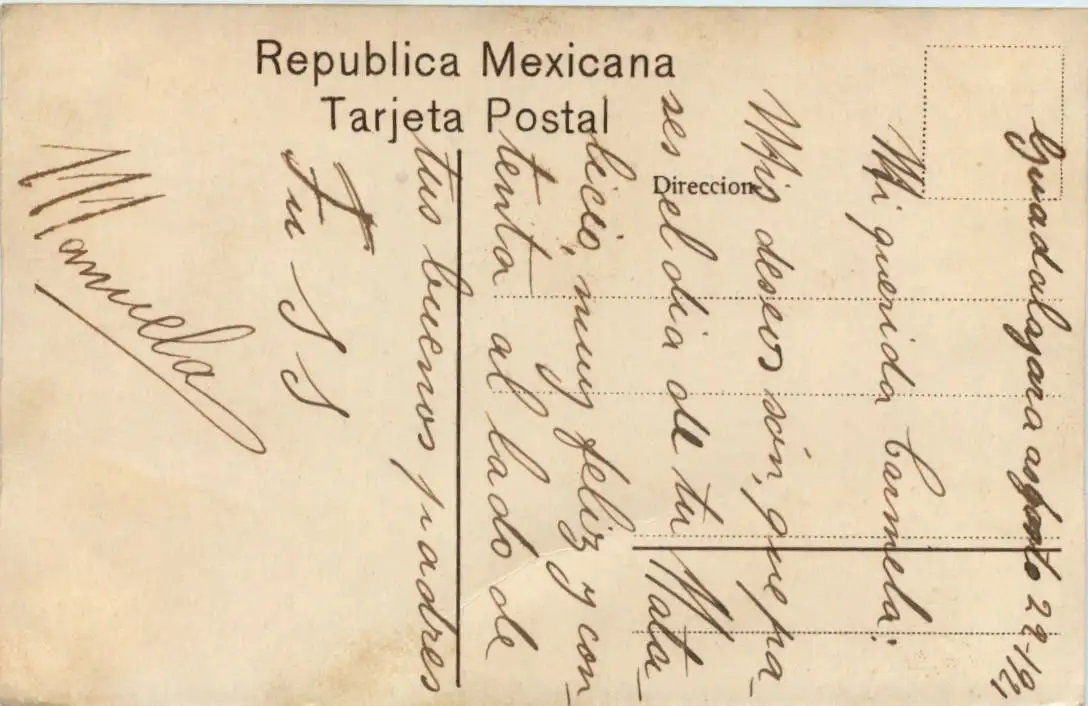 Republica Mexicana
Tarjeta Postal
Direccion
Guadalajara agosto 22-1921
Mi querida Carmela:
Mis deseos són, que pa_
ses el dia de tu Nata_
licio, muy feliz y con_
tenta al lado de
tus buenos padres
Tu
S S
Manuela